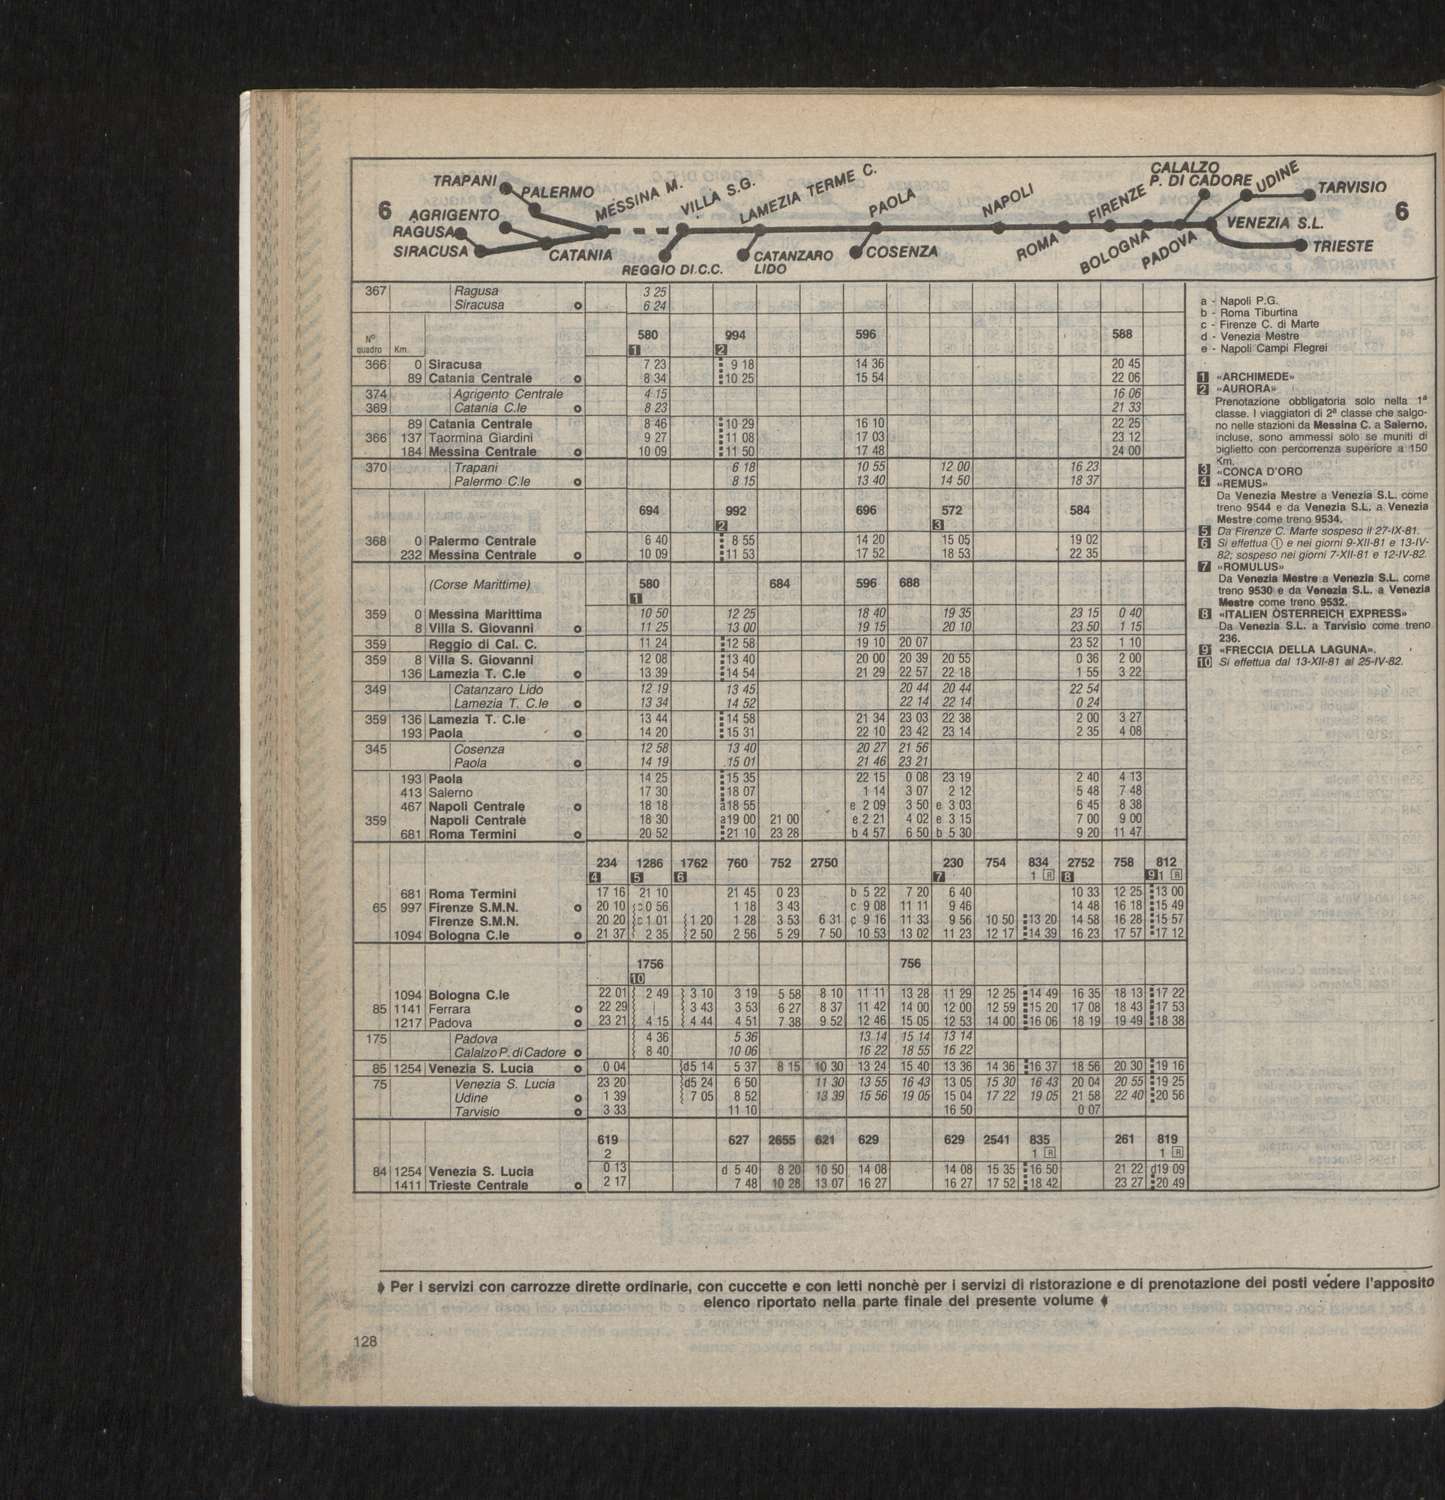 6
TRAPANI
PALERMO
AGRIGENTO
RAGUSA
SIRACUSA
CATANIA
MESSINA M.
VILLA S.G.
REGGIO DI C.C.
LAMEZIA TERME C.
CATANZARO LIDO
PAOLA
COSENZA
NAPOLI
ROMA
FIRENZE
BOLOGNA
PADOVA
CALALZO
P. DI CADORE
UDINE
TARVISIO
VENEZIA S.L.
TRIESTE
6
367 Ragusa 3 25
Siracusa 6 24
Nº quadro Km. 580 994 596 588
1 2
366 0 Siracusa 7 23 9 18 14 36 20 45
89 Catania Centrale 8 34 10 25 15 54 22 06
374 Agrigento Centrale 4 15 16 06
369 Catania C.le 8 23 21 33
89 Catania Centrale 8 46 10 29 16 10 22 25
366 137 Taormina Giardini 9 27 11 08 17 03 23 12
184 Messina Centrale 10 09 11 50 17 48 24 00
370 Trapani 6 18 10 55 12 00 16 23
Palermo C.le 8 15 13 40 14 50 18 37
694 992 696 572 584
2 3
368 0 Palermo Centrale 6 40 8 55 14 20 15 05 19 02
232 Messina Centrale 10 09 11 53 17 52 18 53 22 35
(Corse Marittime) 580 684 596 688
1
359 0 Messina Marittima 10 50 12 25 18 40 19 35 23 15 0 40
8 Villa S. Giovanni 11 25 13 00 19 15 20 10 23 50 1 15
359 Reggio di Cal. C. 11 24 12 58 19 10 20 07 23 52 1 10
359 8 Villa S. Giovanni 12 08 13 40 20 00 20 39 20 55 0 36 2 00
136 Lamezia T. C.le 13 39 14 54 21 29 22 57 22 18 1 55 3 22
349 Catanzaro Lido 12 19 13 45 20 44 20 44 22 54
Lamezia T. C.le 13 34 14 52 22 14 22 14 0 24
359 136 Lamezia T. C.le 13 44 14 58 21 34 23 03 22 38 2 00 3 27
193 Paola 14 20 15 31 22 10 23 42 23 14 2 35 4 08
345 Cosenza 12 58 13 40 20 27 21 56
Paola 14 19 15 01 21 46 23 21
193 Paola 14 25 15 35 22 15 0 08 23 19 2 40 4 13
413 Salerno 17 30 18 07 1 14 3 07 2 12 5 48 7 48
467 Napoli Centrale 18 18 a18 55 e 2 09 3 50 e 3 03 6 45 8 38
359 Napoli Centrale 18 30 a19 00 21 00 e 2 21 4 02 e 3 15 7 00 9 00
681 Roma Termini 20 52 21 10 23 28 b 4 57 6 50 b 5 30 9 20 11 47
234 1286 1762 760 752 2750 230 754 834 2752 758 812
4 5 6 7 1 R 8 9 1 R
681 Roma Termini 17 16 21 10 21 45 0 23 b 5 22 7 20 6 40 10 33 12 25 13 00
65 997 Firenze S.M.N. 20 10 c 0 56 1 18 3 43 c 9 08 11 11 9 46 14 48 16 18 15 49
Firenze S.M.N. 20 20 c 1 01 1 20 1 28 3 53 6 31 c 9 16 11 33 9 56 10 50 13 20 14 58 16 28 15 57
1094 Bologna C.le 21 37 2 35 2 50 2 56 5 29 7 50 10 53 13 02 11 23 12 17 14 39 16 23 17 57 17 12
1756 756
10
1094 Bologna C.le 22 01 2 49 3 10 3 19 5 58 8 10 11 11 13 28 11 29 12 25 14 49 16 35 18 13 17 22
85 1141 Ferrara 22 29 | 3 43 3 53 6 27 8 37 11 42 14 00 12 00 12 59 15 20 17 08 18 43 17 53
1217 Padova 23 21 4 15 4 44 4 51 7 38 9 52 12 46 15 05 12 53 14 00 16 06 18 19 19 49 18 38
175 Padova 4 36 5 36 13 14 15 14 13 14
Calalzo P. di Cadore 8 40 10 06 16 22 18 55 16 22
85 1254 Venezia S. Lucia 0 04 d5 14 5 37 8 15 10 30 13 24 15 40 13 36 14 36 16 37 18 56 20 30 19 16
75 Venezia S. Lucia 23 20 d5 24 6 50 11 30 13 55 16 43 13 05 15 30 16 43 20 04 20 55 19 25
Udine 1 39 7 05 8 52 13 39 15 56 19 05 15 04 17 22 19 05 21 58 22 40 20 56
Tarvisio 3 33 11 10 16 50 0 07
619 627 2655 621 629 629 2541 835 261 819
2 1 R 1 R
84 1254 Venezia S. Lucia 0 13 d 5 40 8 20 10 50 14 08 14 08 15 35 16 50 21 22 d19 09
1411 Trieste Centrale 2 17 7 48 10 28 13 07 16 27 16 27 17 52 18 42 23 27 20 49
a - Napoli P.G.
b - Roma Tiburtina
c - Firenze C. di Marte
d - Venezia Mestre
e - Napoli Campi Flegrei
1 «ARCHIMEDE»
2 «AURORA»
Prenotazione obbligatoria solo nella 1ª
classe. I viaggiatori di 2ª classe che salgo-
no nelle stazioni da Messina C. a Salerno,
incluse, sono ammessi solo se muniti di
biglietto con percorrenza superiore a 150
Km.
3 «CONCA D'ORO
4 «REMUS»
Da Venezia Mestre a Venezia S.L. come
treno 9544 e da Venezia S.L. a Venezia
Mestre come treno 9534.
5 Da Firenze C. Marte sospeso il 27-IX-81.
6 Si effettua ① e nei giorni 9-XII-81 e 13-IV-
82; sospeso nei giorni 7-XII-81 e 12-IV-82.
7 «ROMULUS»
Da Venezia Mestre a Venezia S.L. come
treno 9530 e da Venezia S.L. a Venezia
Mestre come treno 9532.
8 «ITALIEN ÖSTERREICH EXPRESS»
Da Venezia S.L. a Tarvisio come treno
236.
9 «FRECCIA DELLA LAGUNA».
10 Si effettua dal 13-XII-81 al 25-IV-82.
Per i servizi con carrozze dirette ordinarie, con cuccette e con letti nonchè per i servizi di ristorazione e di prenotazione dei posti vedere l'apposito
elenco riportato nella parte finale del presente volume
128